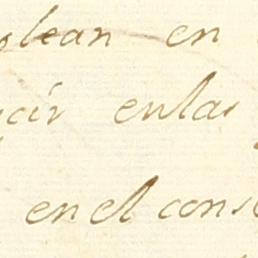 lean en
cir en las
en el cons